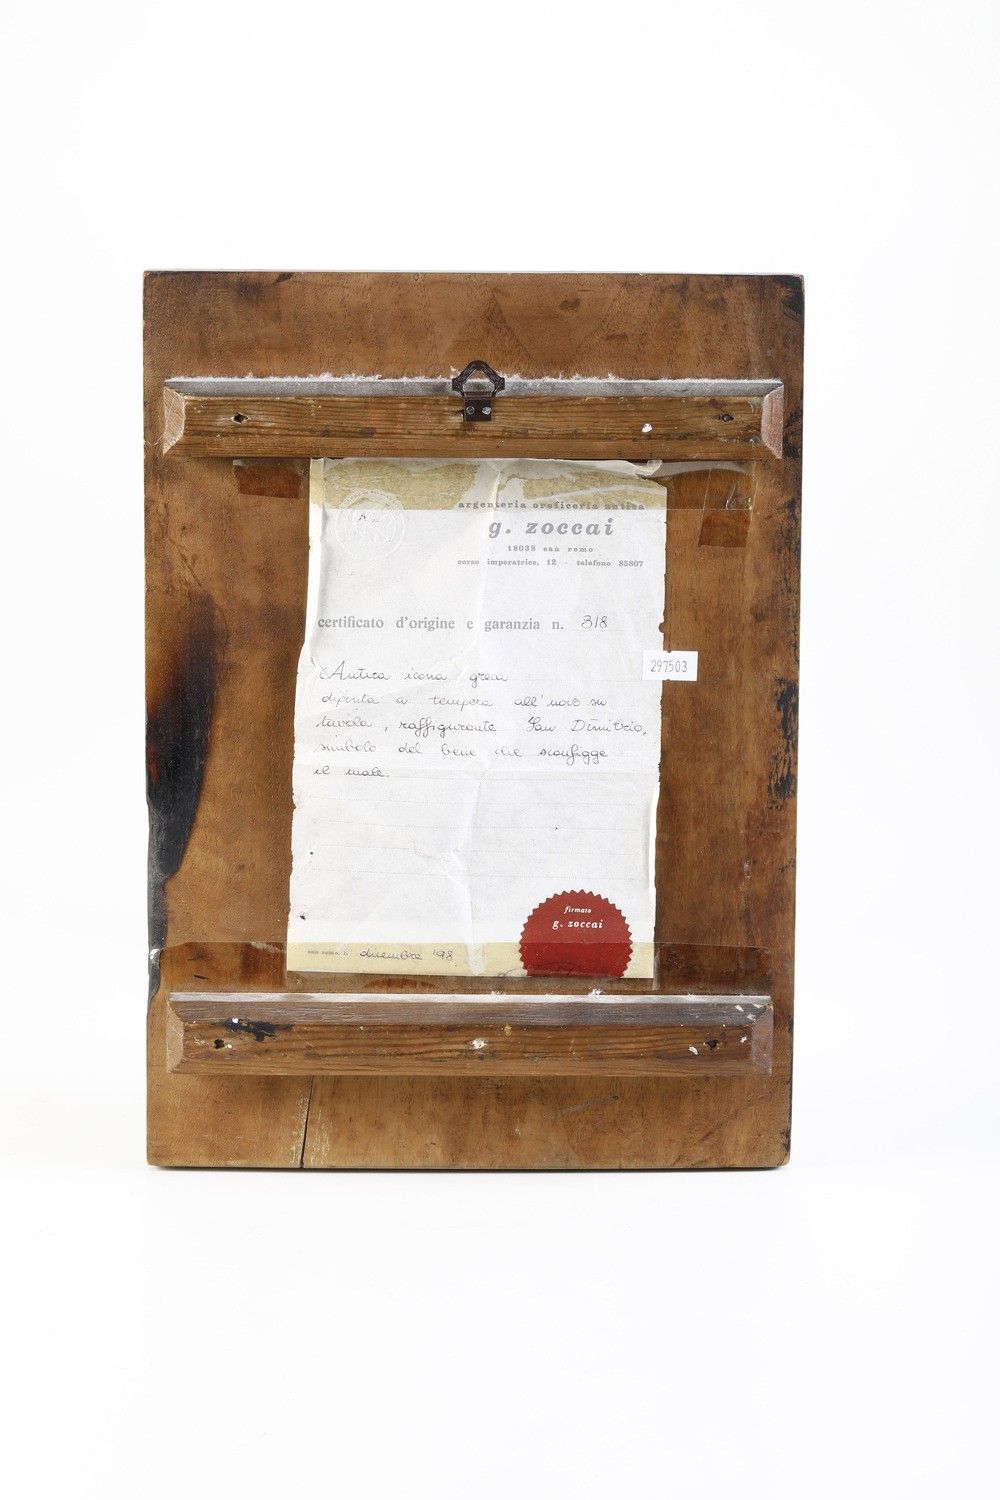 argenteria oreficeria antica
g. zoccai
18038 san remo
corso imperatrice, 12 - telefono 85807
certificato d'origine e garanzia n. 318
297503
Antica icona greca
dipinta a tempera all'uovo su
tavola, raffigurante San Dimitrio,
simbolo del bene che sconfigge
il male.
firmato
g. zoccai
san remo, li dicembre '98